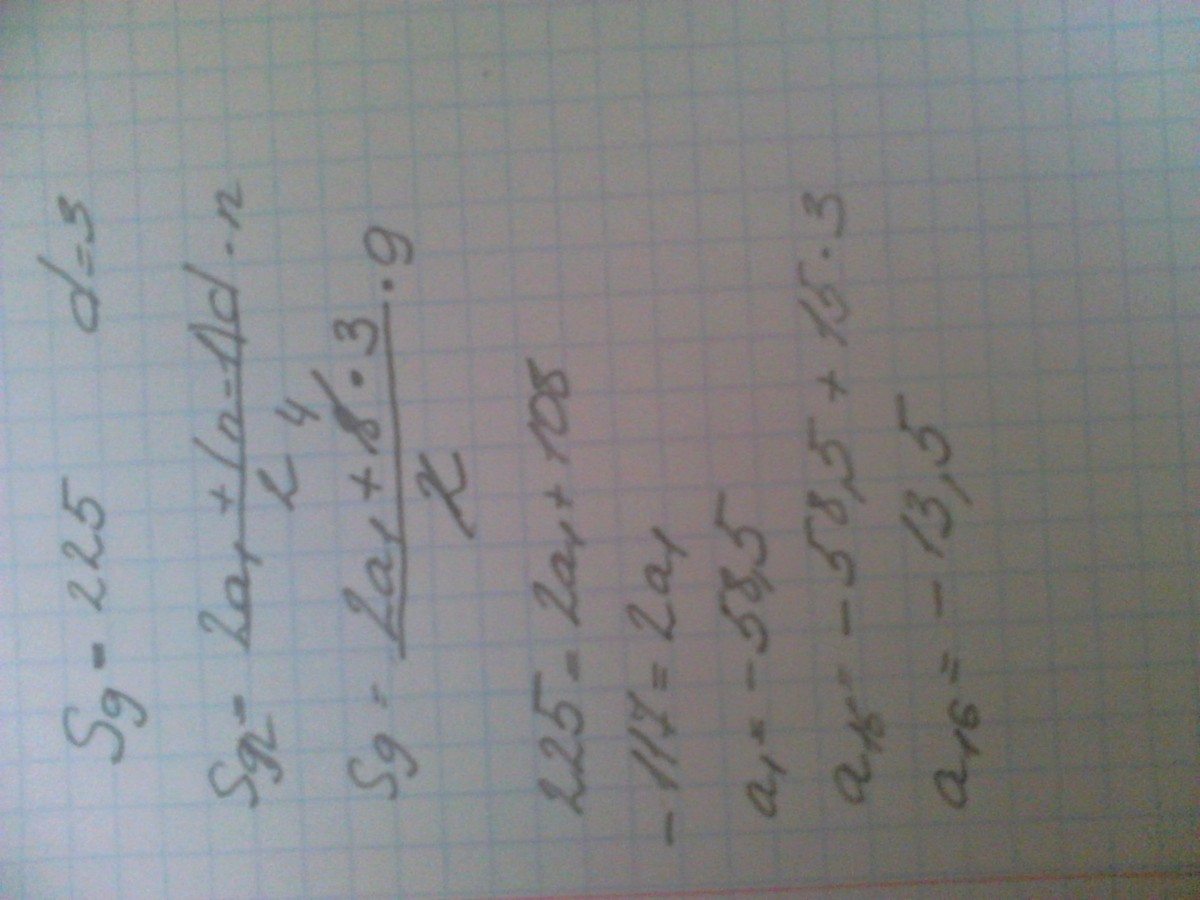 S9 = 225 d=3
Sn = 2a1 + (n-1)d / 2 · n
S9 = 2a1 + 8 4 · 3 / 2 · 9
225 = 2a1 + 108
-117 = 2a1
a1 = -58,5
a16 = -58,5 + 15 · 3
a16 = -13,5